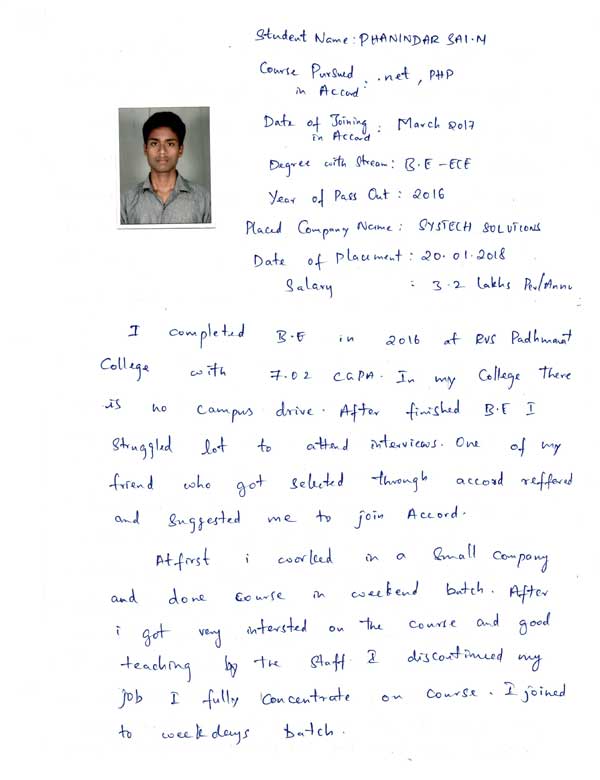 Student Name : PHANINDAR SAI.M
Course Pursued : .net, PHP
in Accord
Date of Joining : March 2017
in Accord
Degree with Stream : B.E - ECE
Year of Pass Out : 2016
Placed Company Name : SYSTECH SOLUTIONS
Date of Placement : 20.01.2018
Salary : 3.2 Lakhs Per/Annu
I completed B.E in 2016 at RVS Padhmavat
College with 7.02 CGPA. In my College there
is no campus drive. After finished B.E I
struggled lot to attend interviews. One of my
friend who got selected through accord reffered
and suggested me to join Accord.
At first i worked in a small company
and done course in weekend batch. After
i got very intersted on the course and good
teaching by the staff I discontinued my
job I fully concentrate on course. I joined
to weekdays batch.